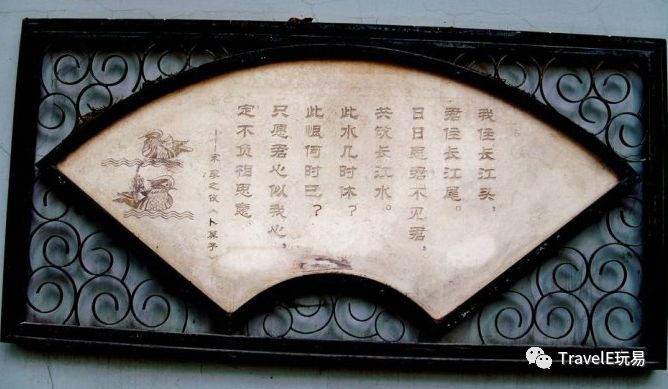 我住长江头，
君住长江尾。
日日思君不见君，
共饮长江水。
此水几时休？
此恨何时已？
只愿君心似我心，
定不负相思意。
——宋 李之仪《卜算子》
TravelE玩易